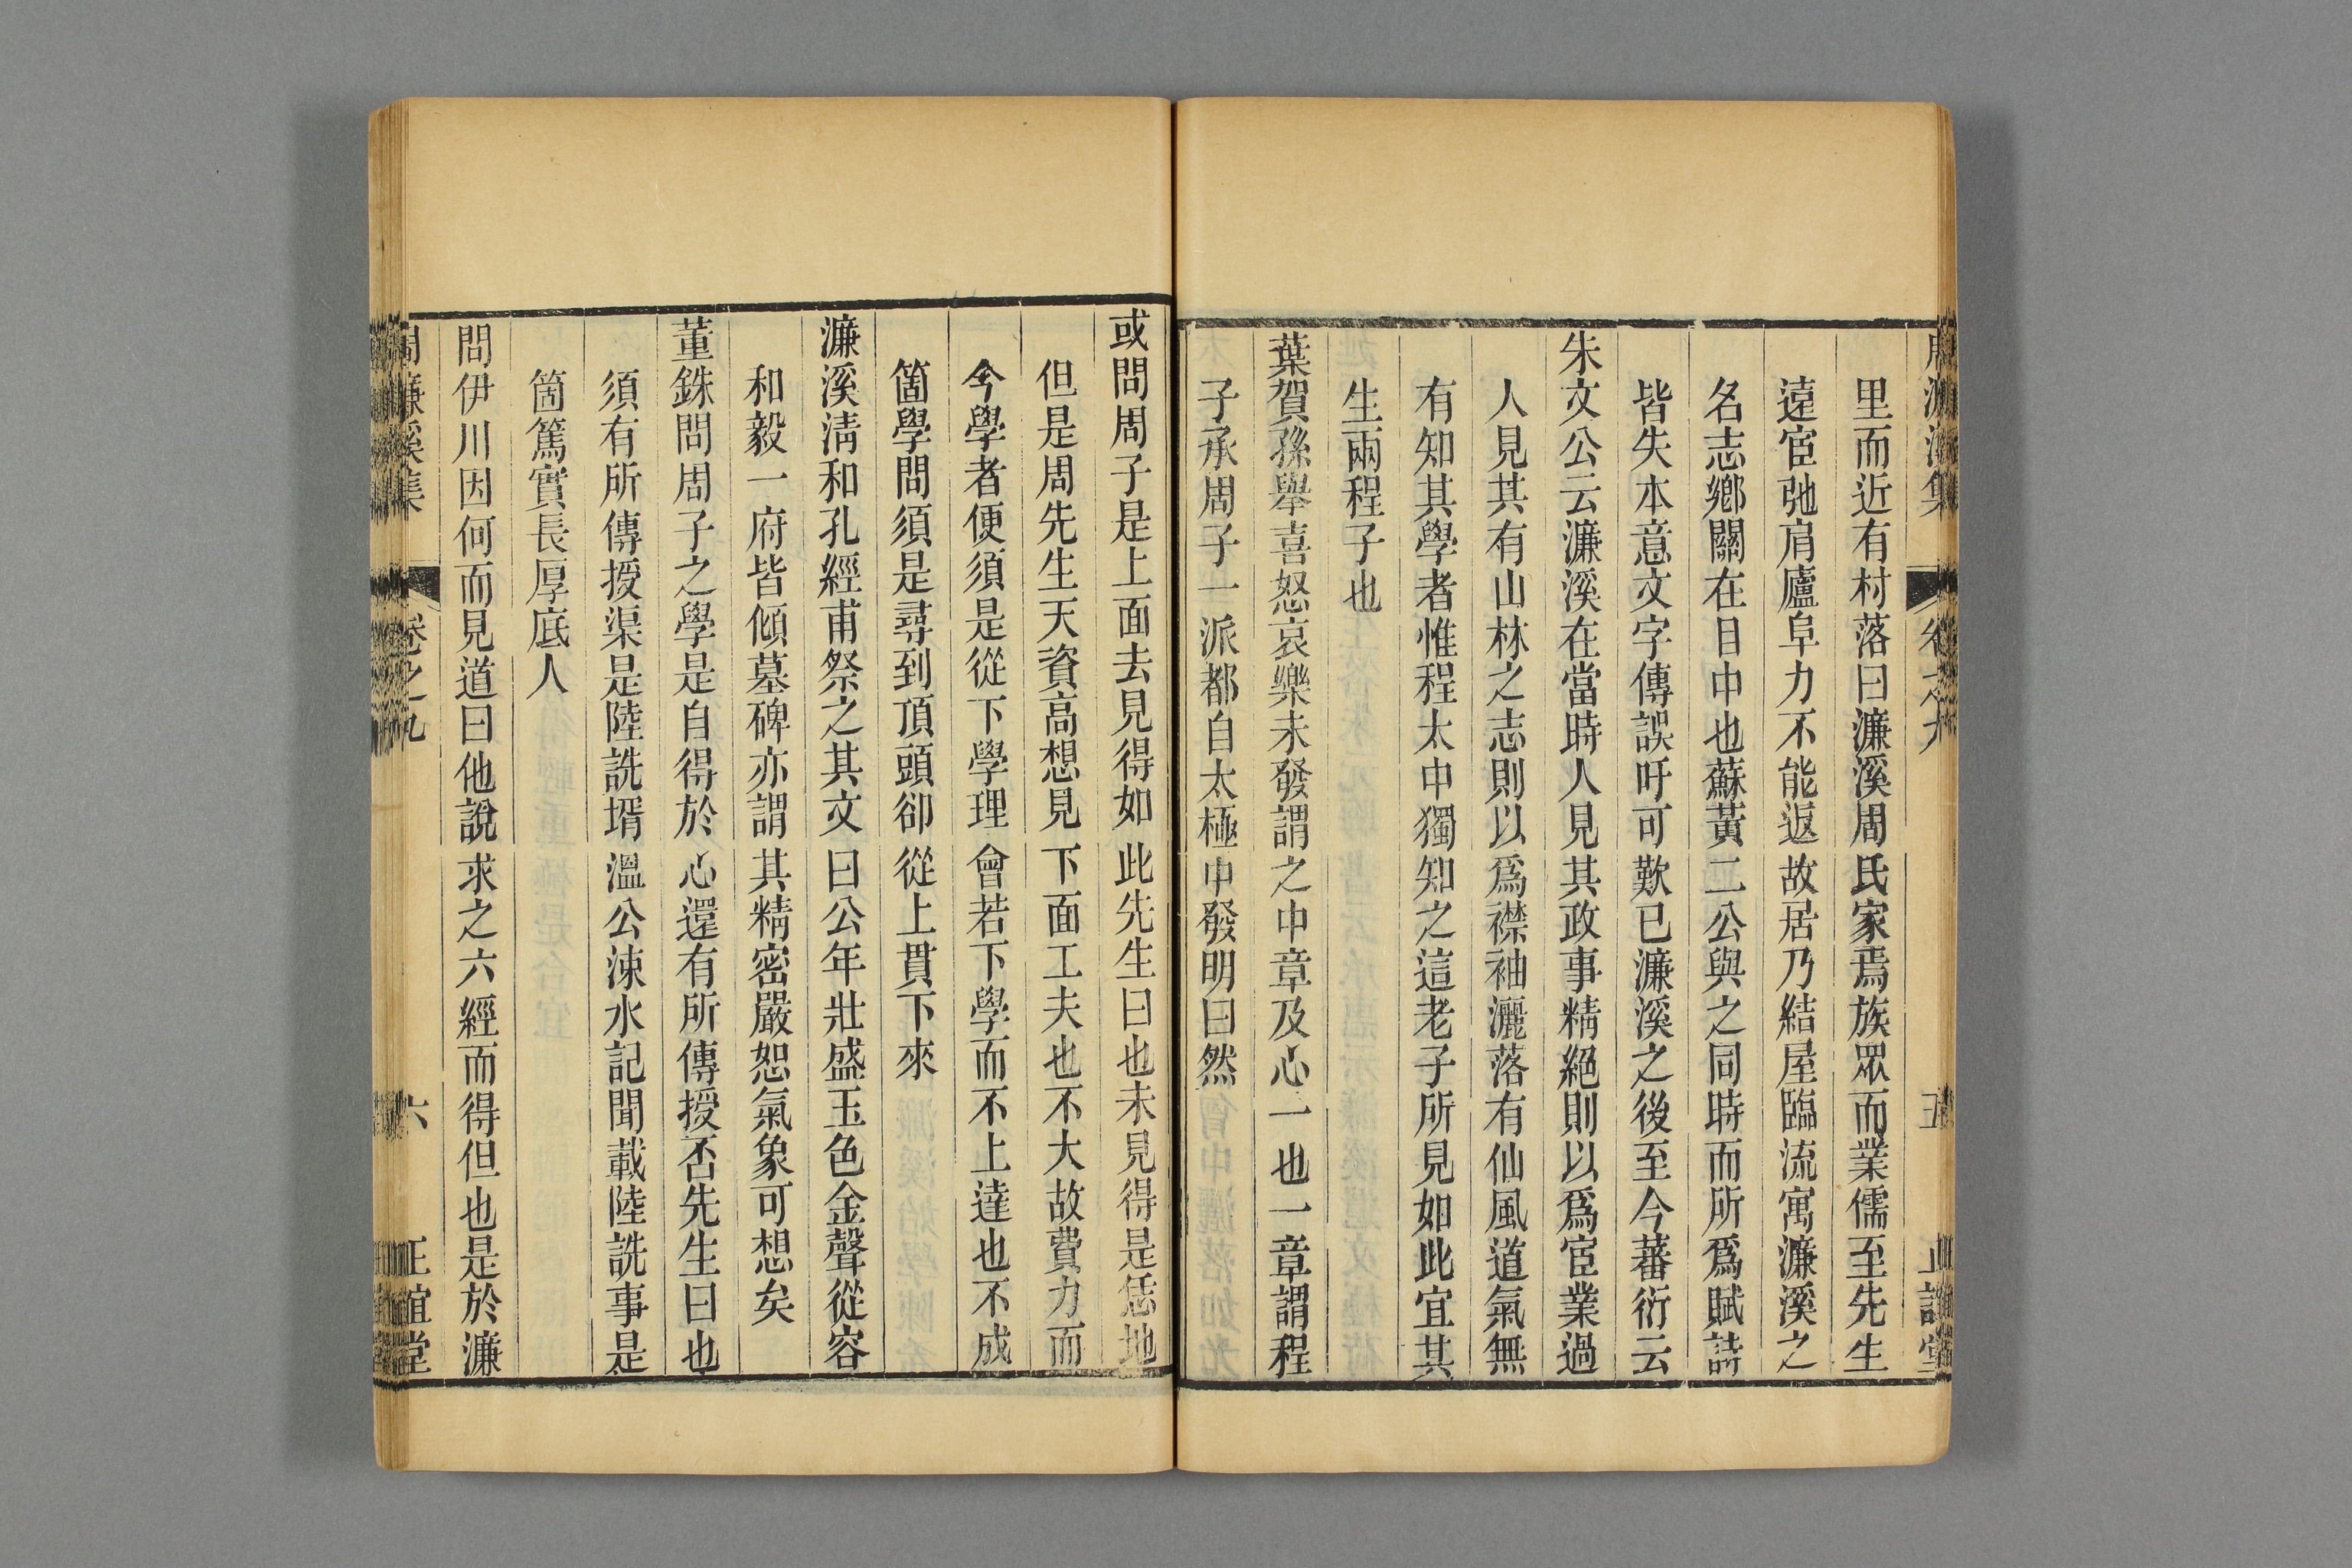 里而近有村落曰濂溪周氏家焉族眾而業儒至先生
遠宦弛肩廬阜力不能返故居乃結屋臨流寓濂溪之
名志鄉關在目中也蘇黃二公與之同時而所爲賦詩
皆失本意文字傳誤吁可歎已濂溪之後至今蕃衍云
朱文公云濂溪在當時人見其政事精絕則以爲宦業過
人見其有山林之志則以爲襟袖灑落有仙風道氣無
有知其學者惟程太中獨知之這老子所見如此宜其
生兩程子也
葉賀孫舉喜怒哀樂未發謂之中章及心一也一章謂程
子承周子一派都自太極中發明曰然
或問周子是上面去見得如此先生曰也未見得是恁地
但是周先生天資高想見下面工夫也不大故費力而
今學者便須是從下學理會若下學而不上達也不成
箇學問須是尋到頂頭卻從上貫下來
濂溪淸和孔經甫祭之其文曰公年壯盛玉色金聲從容
和毅一府皆傾墓碑亦謂其精密嚴恕氣象可想矣
董銖問周子之學是自得於心還有所傳授否先生曰也
須有所傳授渠是陸詵壻溫公涑水記聞載陸詵事是
箇篤實長厚底人
問伊川因何而見道曰他說求之六經而得但也是於濂
周濂溪集 卷之九 六 正誼堂